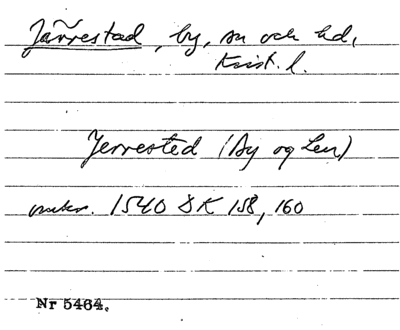 Järrestad, by, sn och hd,
Krist. l.
Jerrested (By og Len)
1540 DK 158, 160
Nr 5464.